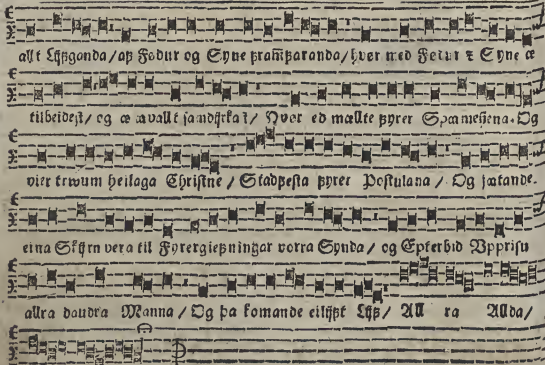 allt Lijfganda/ af Födur og Syne framfaranda/ hver med Fedur z Syne æ
tilbeidest/ og æ ævallt samdyrkast/ Hver ed mællte fyrer Spamenena. Og
vier trwum heilaga Christne / Stadfesta fyrer Postulana / Og jætande.
eina Skijrn vera til Fyrergiefningar vorra Synda / og Epterbid Upprisu
allra daudra Manna / Og þa komande eilijft Lijf/ All ra Allda/